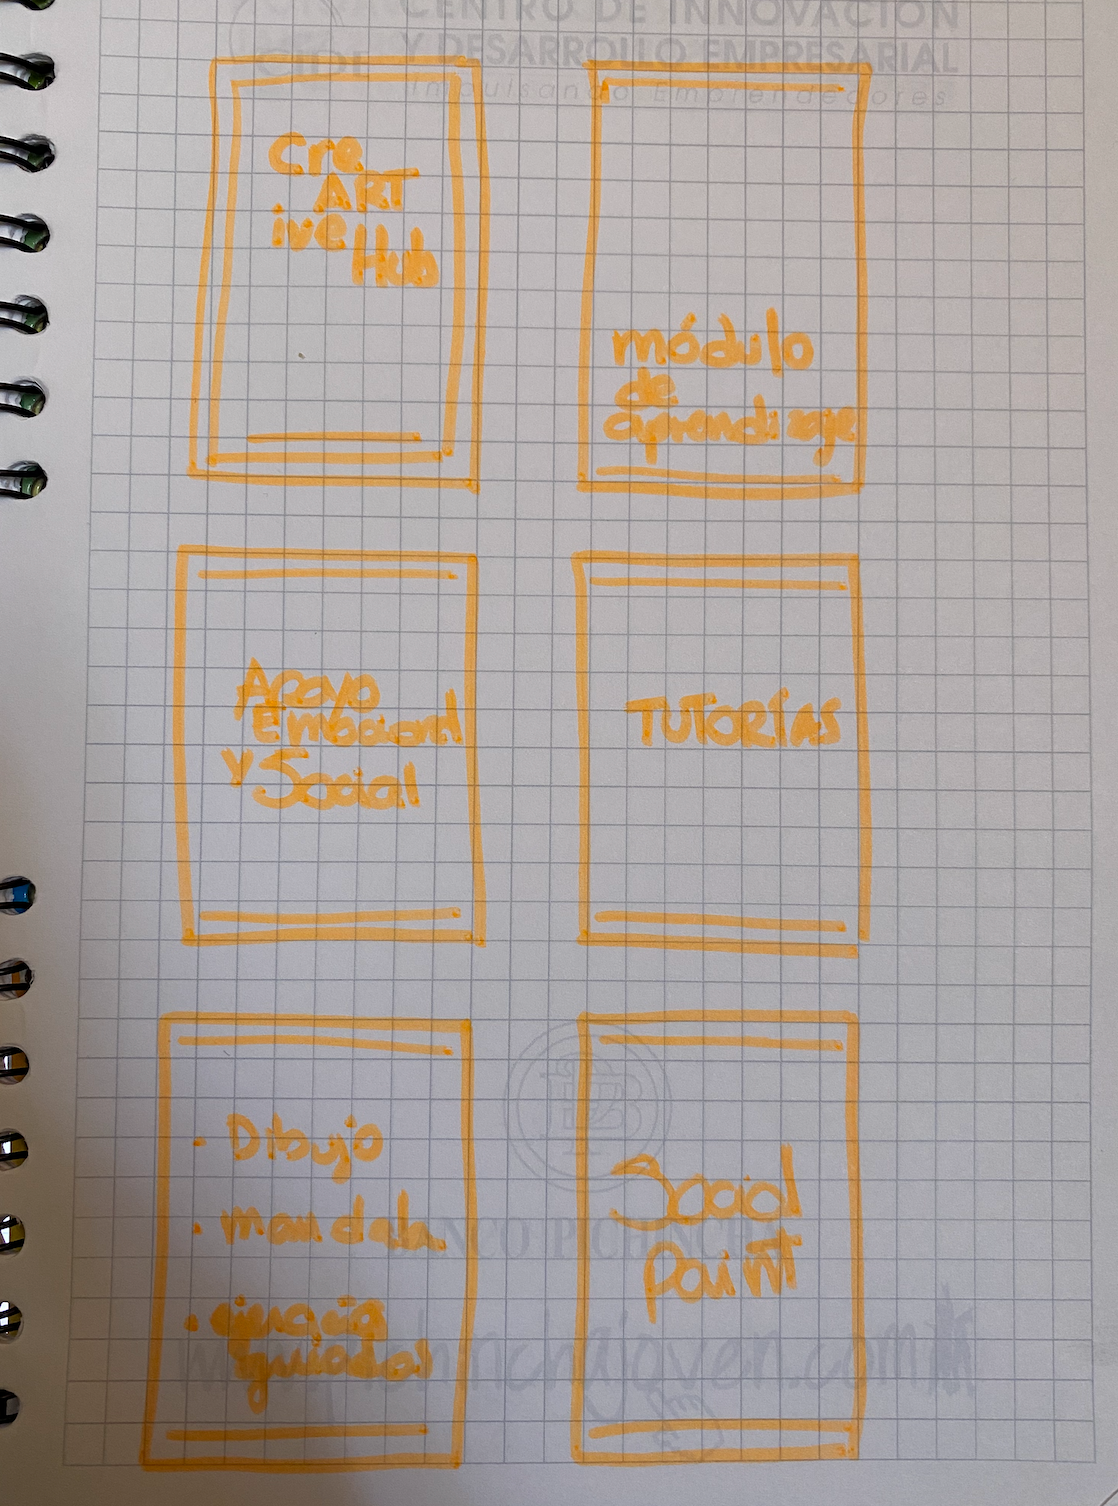 CENTRO DE INNOVACIÓN
CIDE Y DESARROLLO EMPRESARIAL
Impulsando Emprendedores
Cre
ART
ive
Hub
módulo
de
aprendizaje
Apoyo
Emocional
y Social
TUTORÍAS
· Dibujo
· mandala
guiados
Social
point
BANCO PICHINCHA
www.pichinchajoven.com